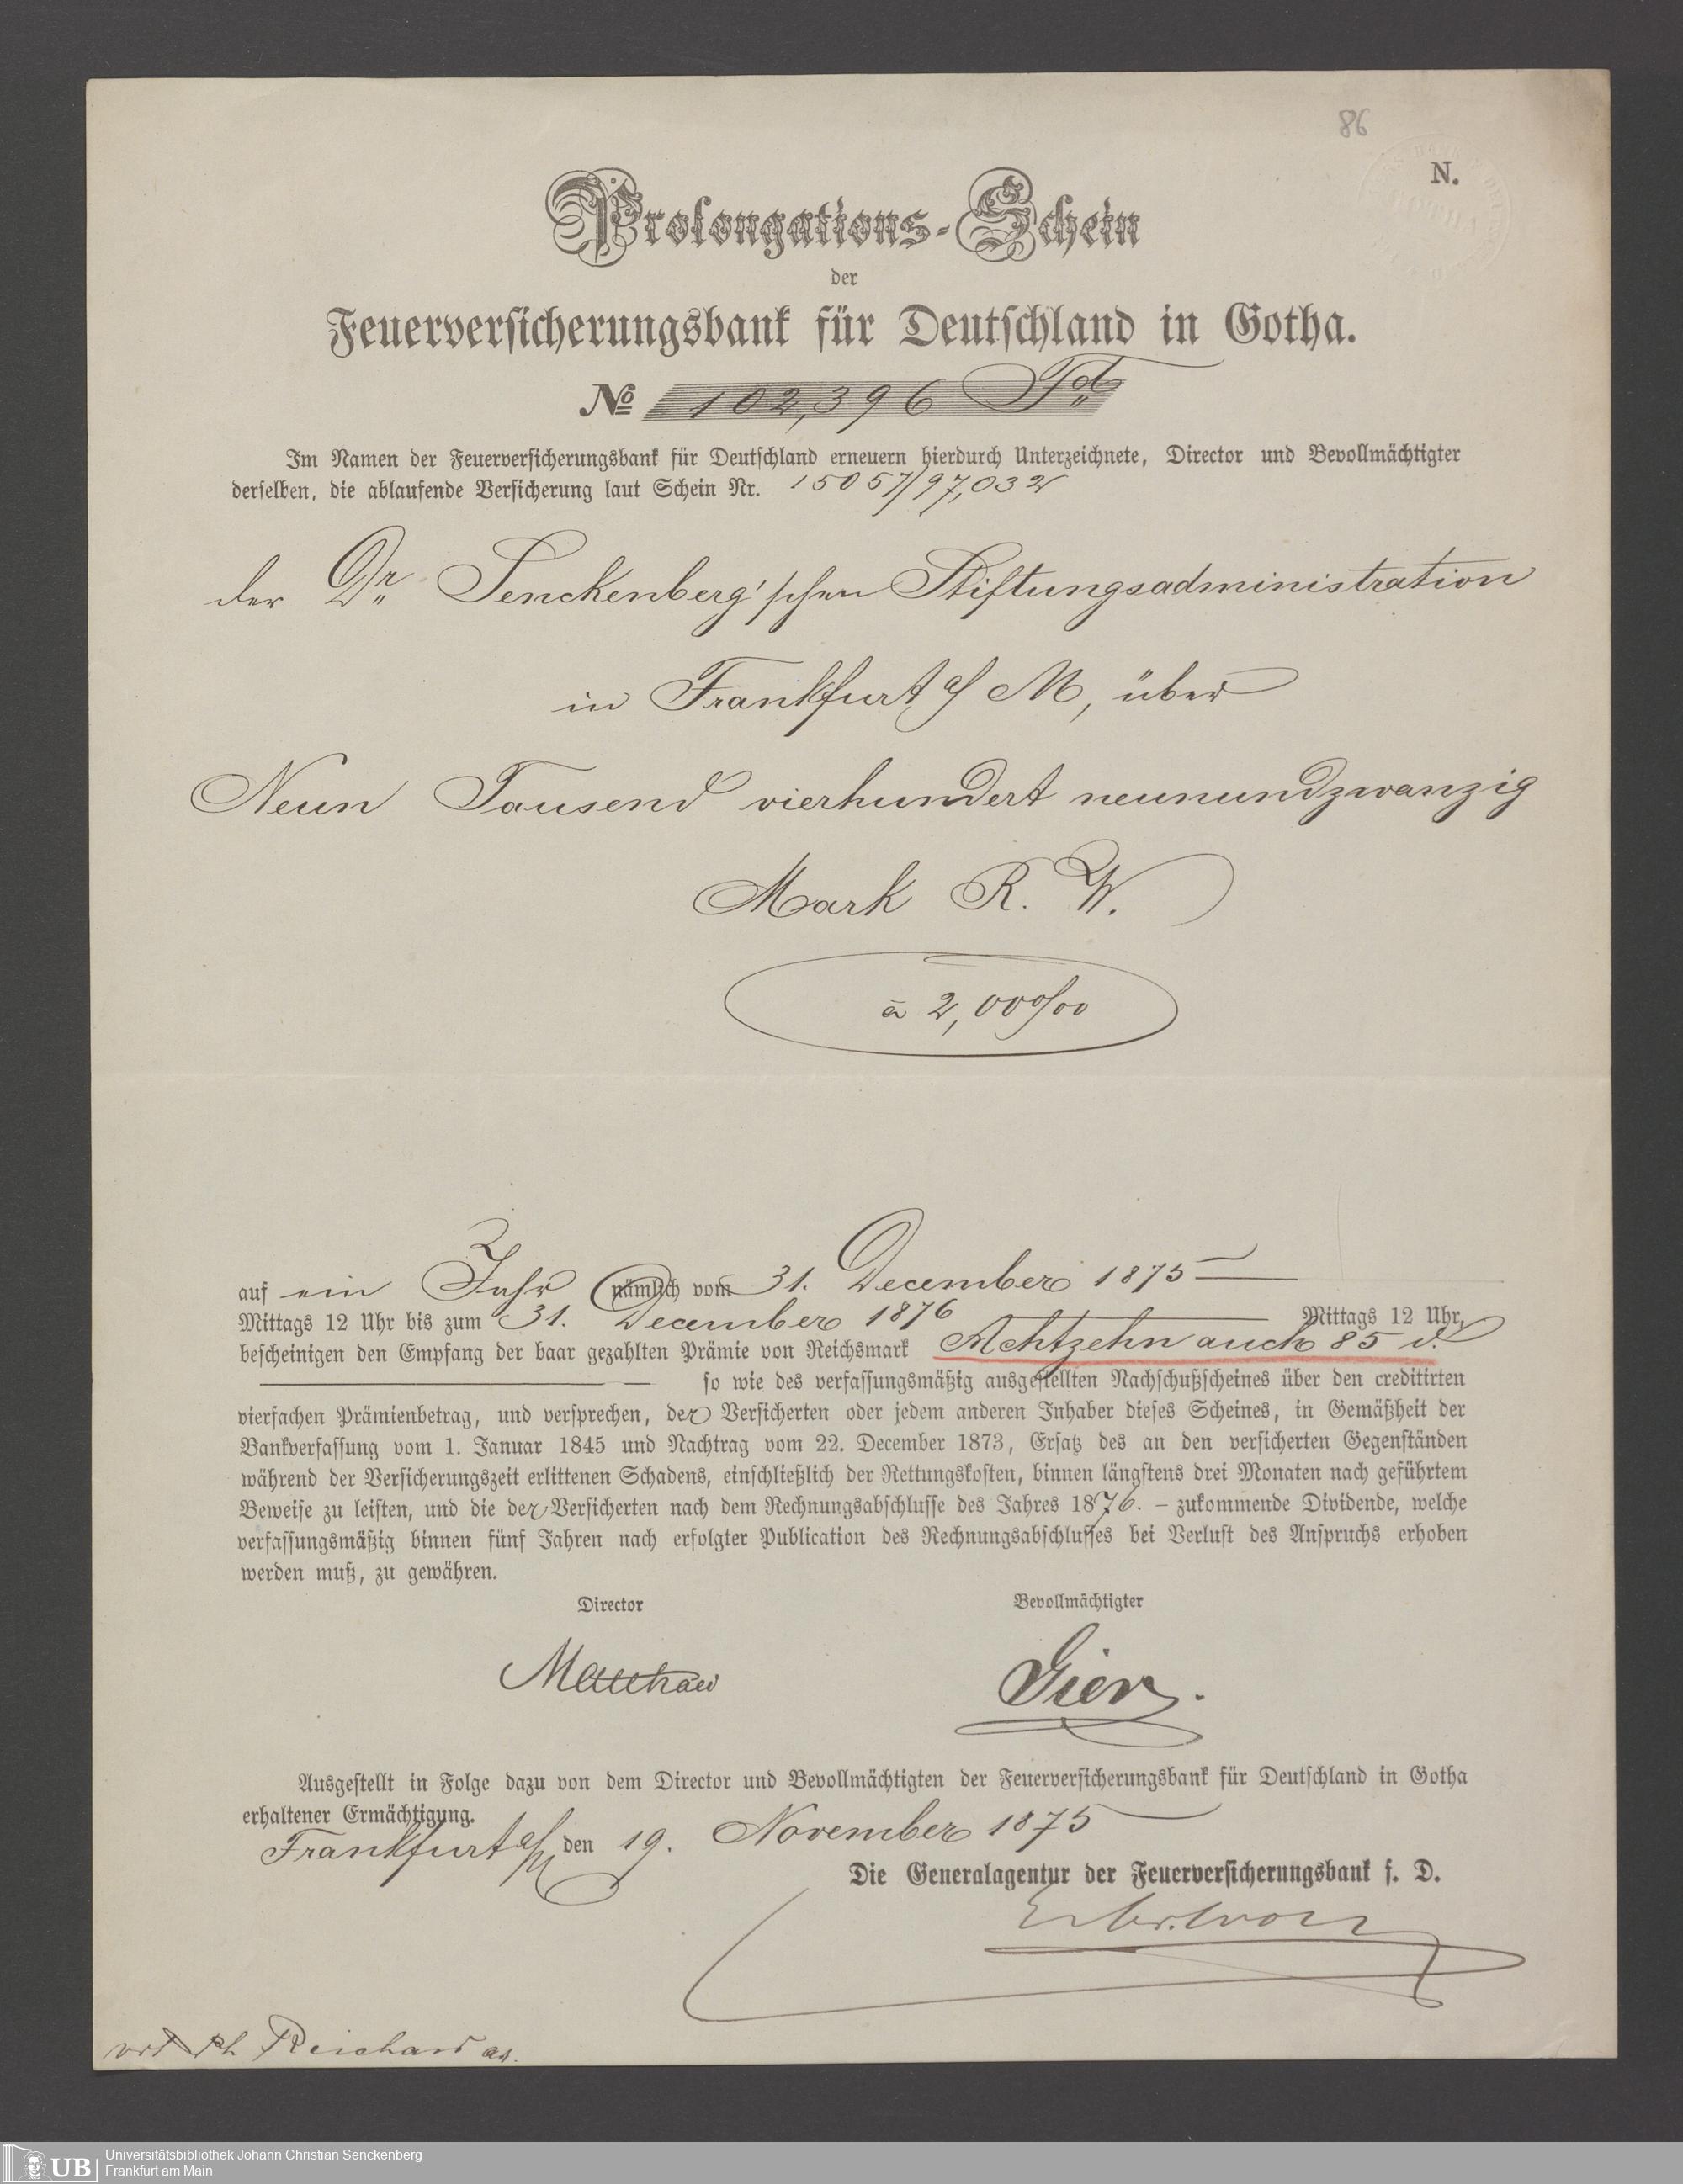 86
N.
Prolongations-Schein
der
Feuerversicherungsbank für Deutschland in Gotha.
No 102,396
Im Namen der Feuerversicherungsbank für Deutschland erneuern hierdurch Unterzeichnete, Director und Bevollmächtigter
derselben, die ablaufende Versicherung laut Schein Nr. 15057/97,032
der Dr. Senckenberg'schen Stiftungsadministration
in Frankfurt a/M, über
Neun Tausend vierhundert neunundzwanzig
Mark R. W.
à 2,00 0/00
auf ein Jahr nämlich vom 31. December 1875
Mittags 12 Uhr bis zum 31. December 1876 Mittags 12 Uhr,
bescheinigen den Empfang der baar gezahlten Prämie von Reichsmark Achtzehn auch 85 d.
so wie des verfassungsmäßig ausgestellten Nachschußscheines über den creditirten
vierfachen Prämienbetrag, und versprechen, der Versicherten oder jedem anderen Inhaber dieses Scheines, in Gemäßheit der
Bankverfassung vom 1. Januar 1845 und Nachtrag vom 22. December 1873, Ersatz des an den versicherten Gegenständen
während der Versicherungszeit erlittenen Schadens, einschließlich der Rettungskosten, binnen längstens drei Monaten nach geführtem
Beweise zu leisten, und die der Versicherten nach dem Rechnungsabschlusse des Jahres 1876. – zukommende Dividende, welche
verfassungsmäßig binnen fünf Jahren nach erfolgter Publication des Rechnungsabschlusses bei Verlust des Anspruchs erhoben
werden muß, zu gewähren.
Director Bevollmächtigter
Matthäi Gier.
Ausgestellt in Folge dazu von dem Director und Bevollmächtigten der Feuerversicherungsbank für Deutschland in Gotha
erhaltener Ermächtigung.
Frankfurt a/M den 19. November 1875
Die Generalagentur der Feuerversicherungsbank f. D.
Ph Reichard
UB
Universitätsbibliothek Johann Christian Senckenberg
Frankfurt am Main